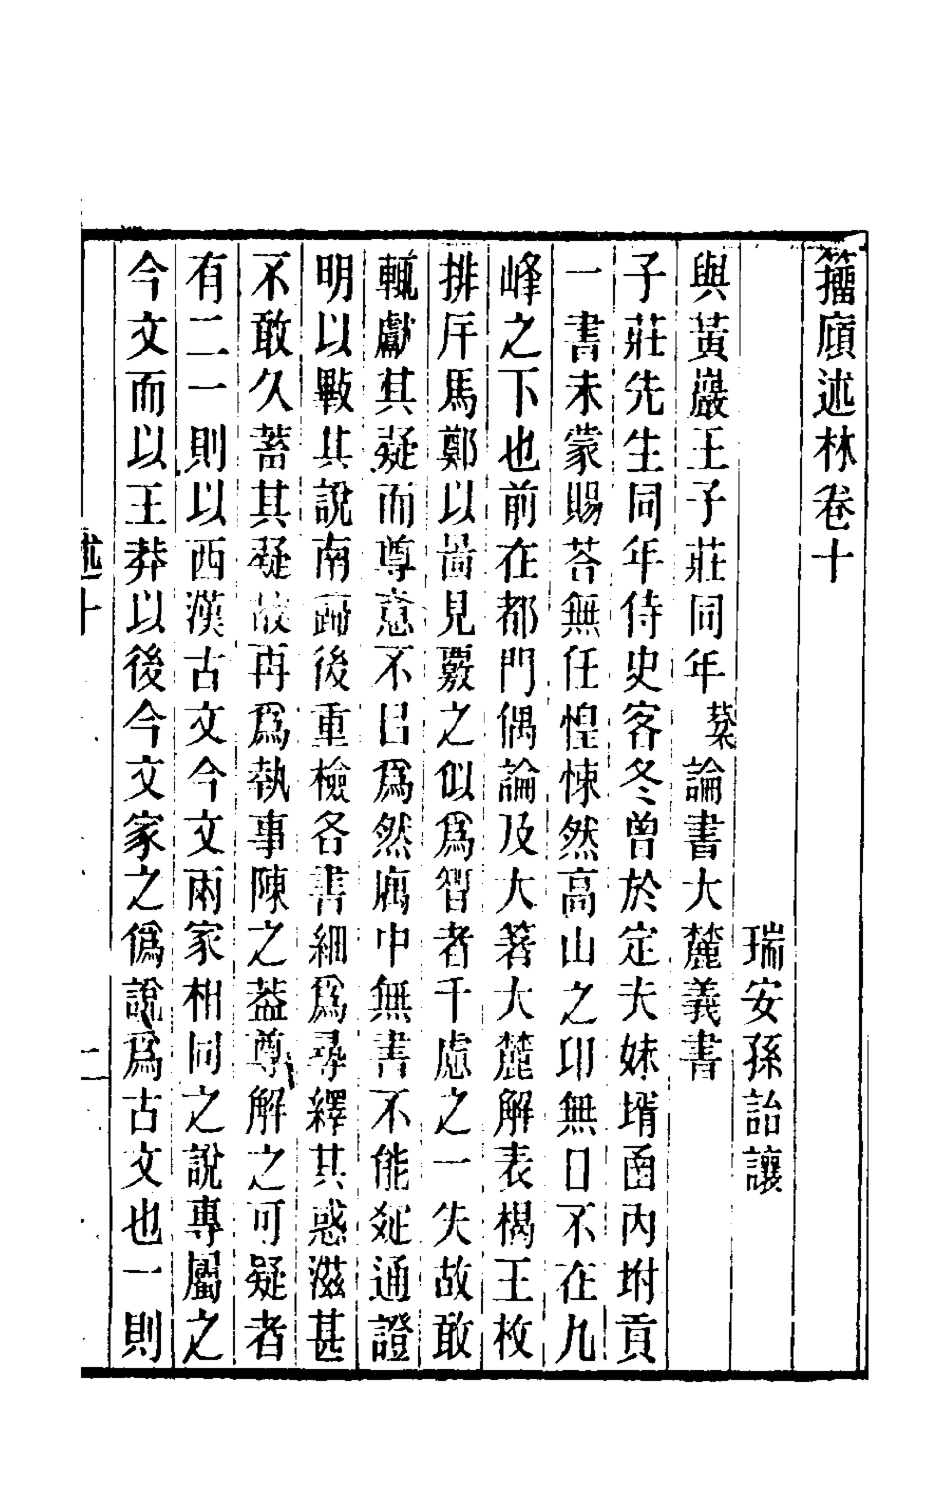 籒廎述林卷十
瑞安孫詒讓
與黃巖王子莊同年棻論書大麓義書
子莊先生同年侍史客冬曾於定夫妹壻函內坿貢
一書未蒙賜荅無任惶悚然高山之卬無日不在九
峰之下也前在都門偶論及大箸大麓解表楬王枚
排斥馬鄭以啚見覈之似爲智者千慮之一失故敢
輒獻其疑而尊意不吕爲然庽中無書不能延通證
明以斁其說南歸後重檢各書細爲尋繹其惑滋甚
不敢久蓄其疑故再爲執事陳之葢尊解之可疑者
有二一則以西漢古文今文兩家相同之說專屬之
今文而以王莽以後今文家之僞說爲古文也一則
述十
一